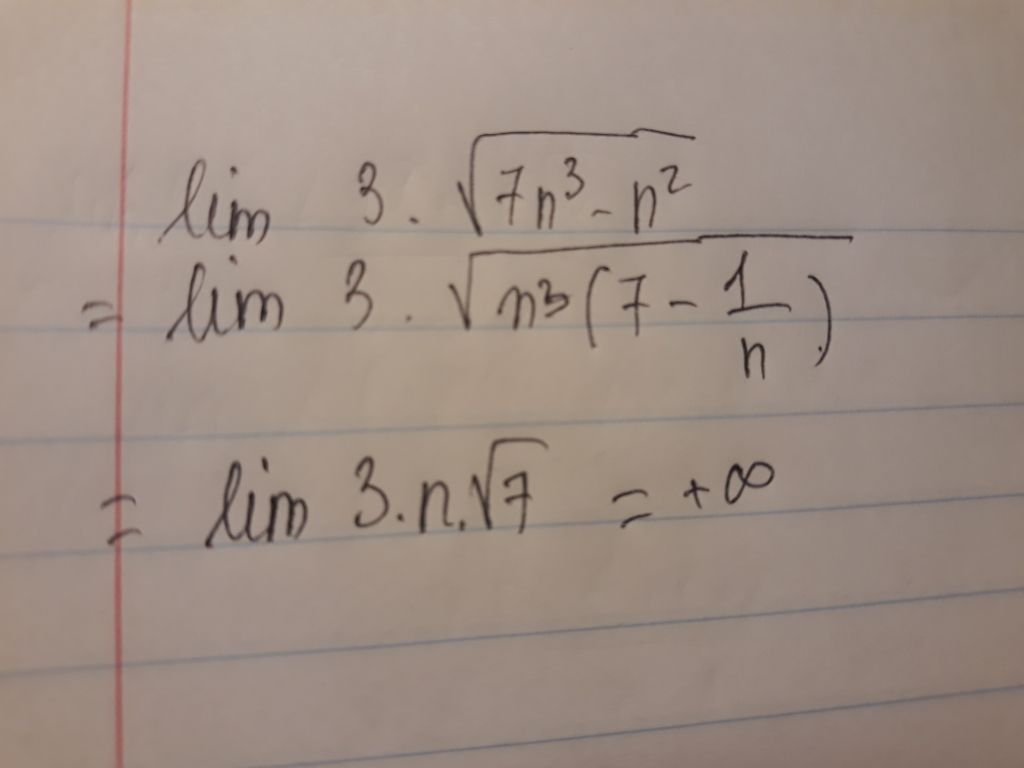 lim 3.√(7n³ - n²)
= lim 3.√(n³(7 - 1/n))
= lim 3.n.√7 = +∞